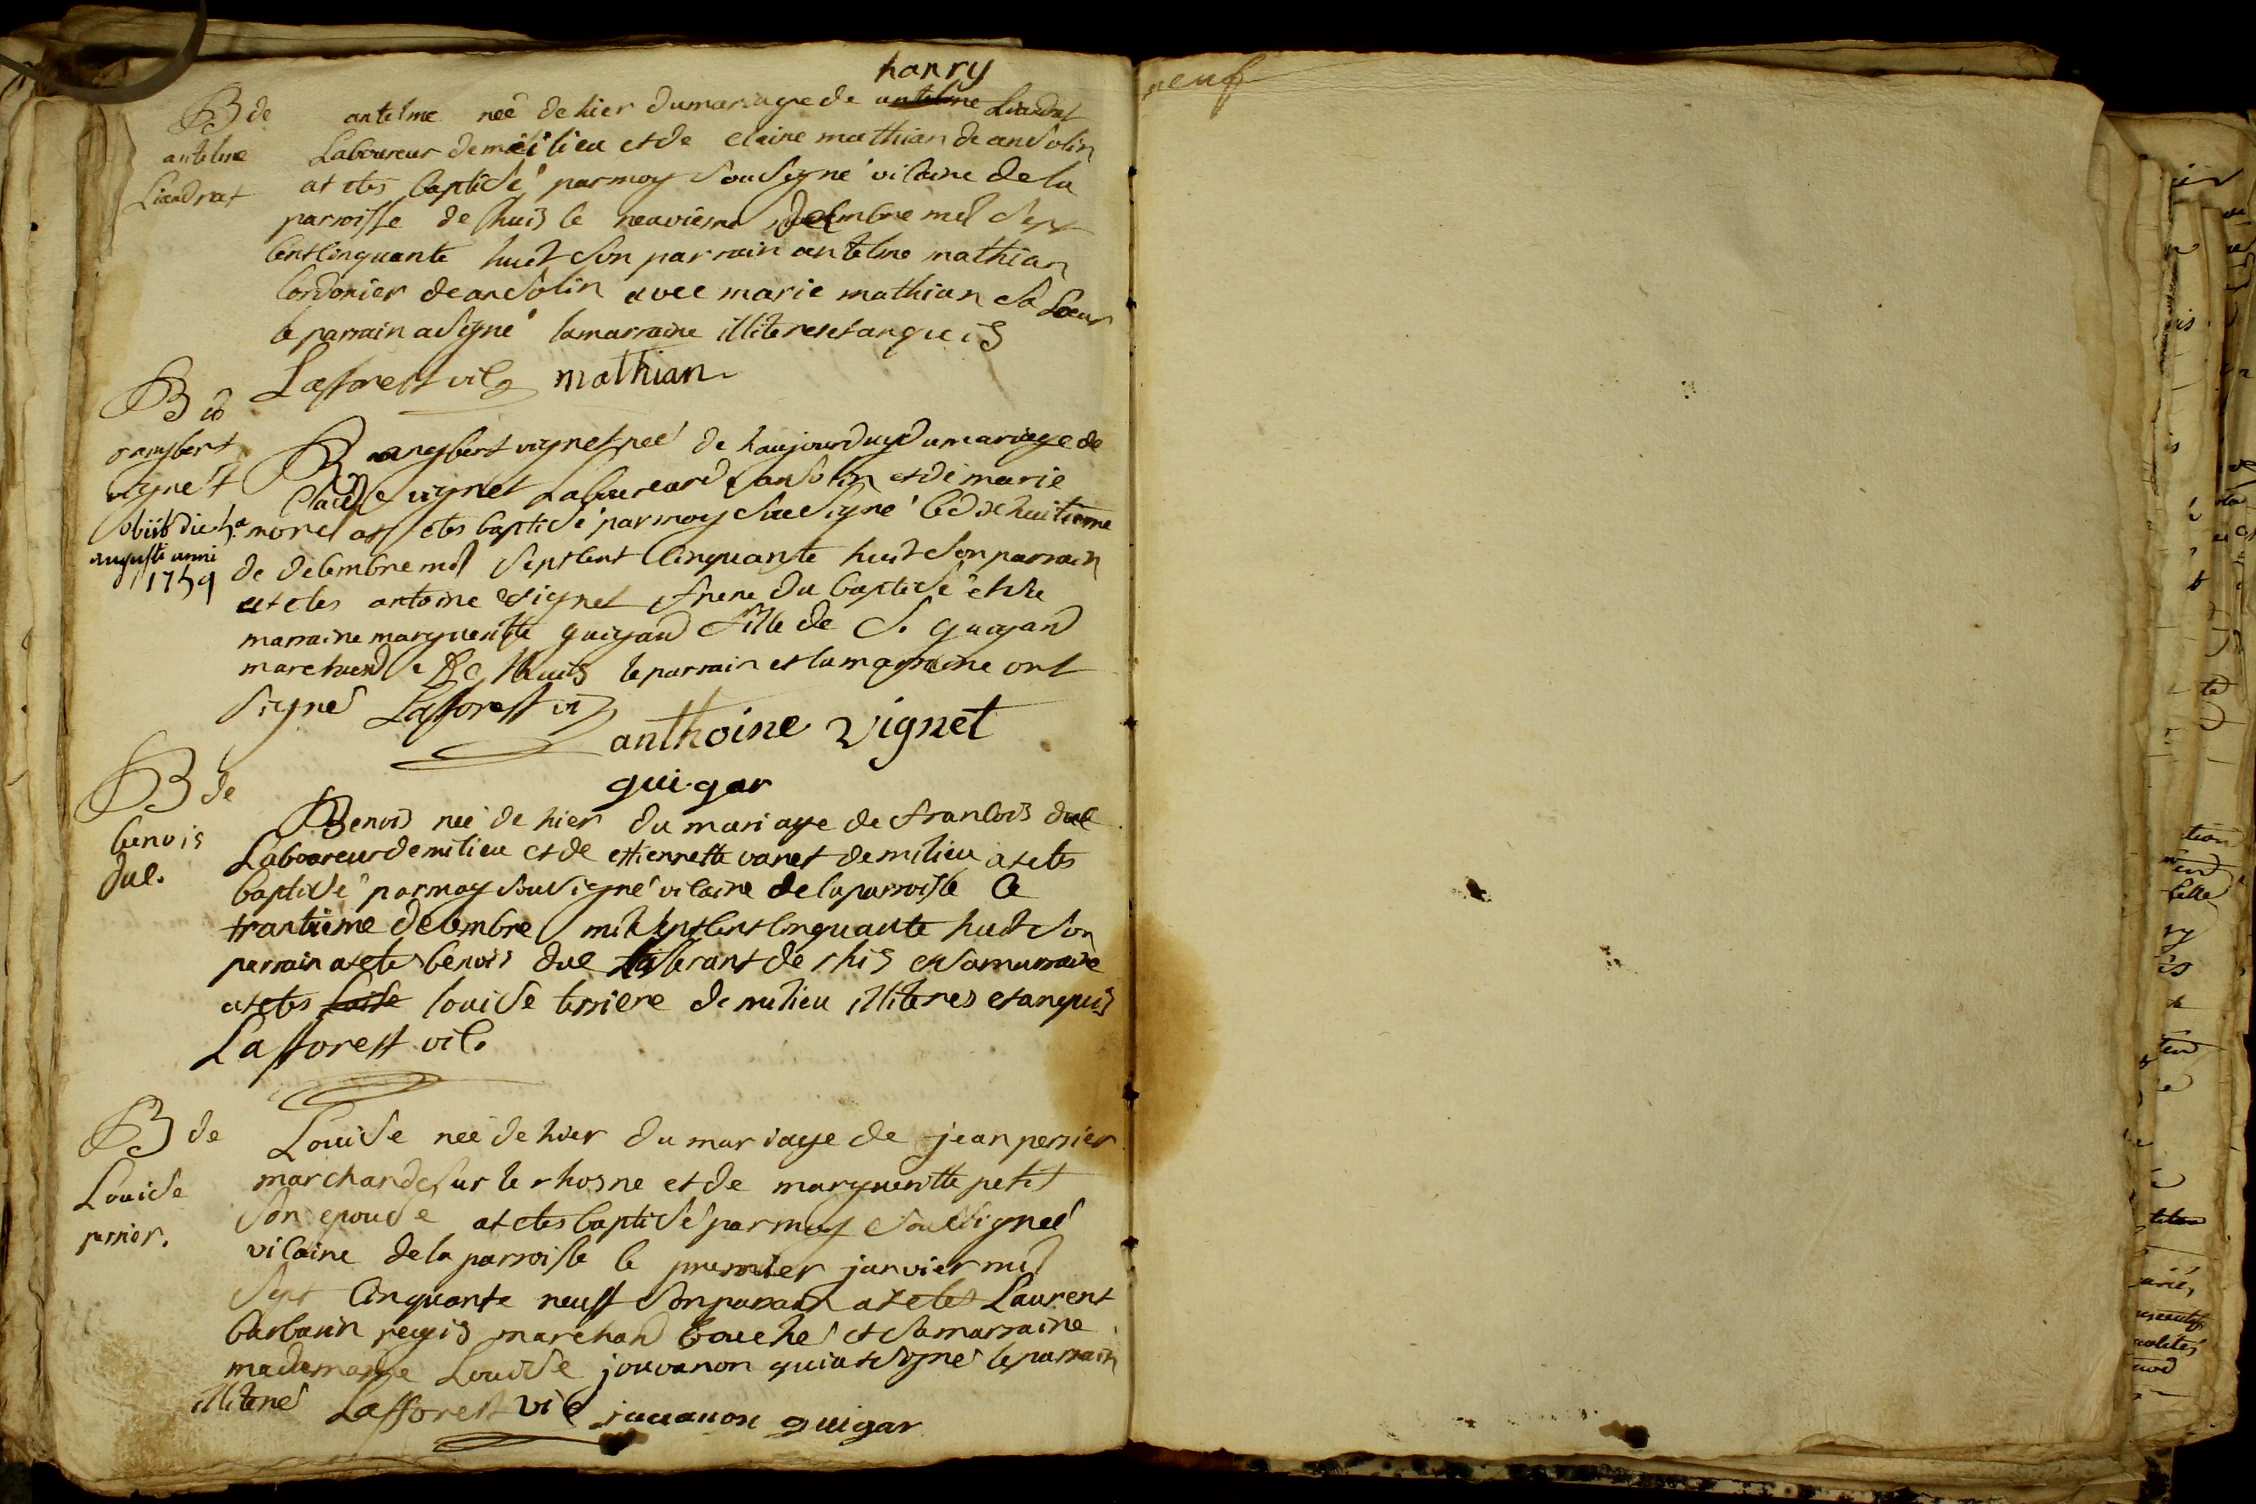 hanry
B de
antelme
Liandrat
antelme neé de hier du mariage de antelme Liandrat
Laboureur de milieu et de claire mathian de ansolin
at etes baptisé par moy sousigné vicaire de la
parroisse de shuis le neuvieme decembre mil sept
cent cinquante huit son parrain antelme mathian
Cordonier de ansolin avec marie mathian sa soeur
le parrain a signé la marraine illiteré et anquis
Lafforest vic mathian
B de
rangbert
vignet
obiit die
augusti anni
1759
Rangbert vignet neé de haujourduy du mariage de
Claude vignet Laboureur de ansolin et de marie
morel at etes baptisé par moy sousigné le dixhuitieme
de decembre mil sept cent cinquante huit son parrain
at etes antoine vignet frere du baptisé et sa
marraine margueritte guigard fille de S. guigard
marchand de shuis le parrain et la marraine ont
signé Lafforest vi
anthoine vignet
guigar
B de
benois
duc.
Benois neé de hier du mariage de francois duc
Laboureur de milieu et de ettiennette vanet de milieu at etes
baptisé par moy sousigné vicaire de la parroisse le
trantieme decembre mil sept cent cinquante huit son
parrain at etes benois duc tisserant de shis et sa marraine
at etes louise terriere de milieu illiteres et anquis
Lafforest vic.
B de
Louise
perrier.
Louise neé de hier du mariage de jean perrier
marchand sur le rhosne et de margueritte petit
son epouse at etes baptisé par moy sousigneé
vicaire de la parroisse le premier janvier mil
sept cinquante neuff son parrain at etes Laurent
barbarin regis marchand bouché et sa marraine
mademoise Louise jouvanon qui at signé le parrain
illiteré Lafforest vic juuanon guigar
neuf